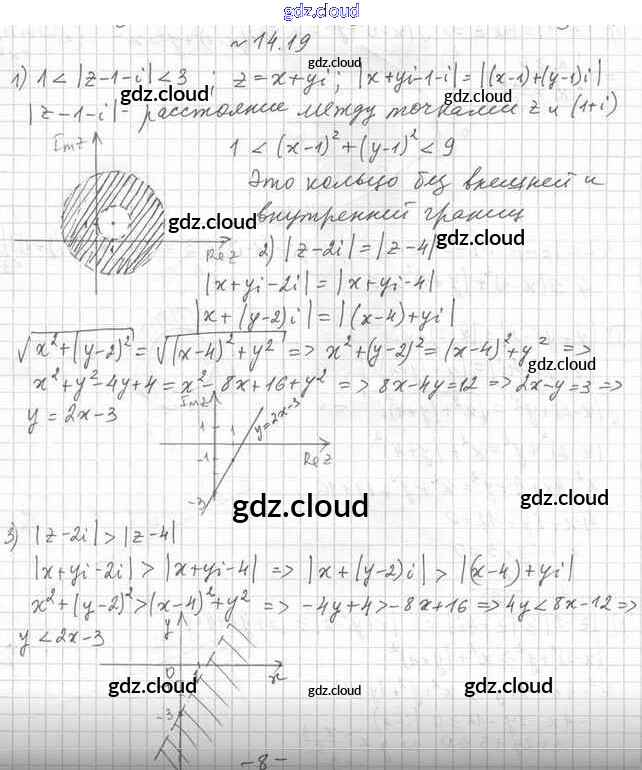 gdz.cloud
№ 14.19
1) 1 < |z-1-i| < 3 ; z = x+yi ; |x+yi-1-i| = |(x-1)+(y-1)i|
gdz.cloud
|z-1-i| - расстояние между точками z и (1+i)
Imz
1 < (x-1)² + (y-1)² < 9
Это кольцо без внешней и
внутренней границ
gdz.cloud
Rez
2) |z-2i| = |z-4|
gdz.cloud
|x+yi-2i| = |x+yi-4|
|x+(y-2)i| = |(x-4)+yi|
√(x²+(y-2)²) = √((x-4)²+y²) => x²+(y-2)² = (x-4)²+y² =>
gdz.cloud
x²+y²-4y+4 = x²-8x+16+y² => 8x-4y=12 => 2x-y=3 =>
y = 2x-3
Imz
y=2x-3
1
1
-1
Rez
-3
gdz.cloud
gdz.cloud
3) |z-2i| > |z-4|
|x+yi-2i| > |x+yi-4| => |x+(y-2)i| > |(x-4)+yi|
x²+(y-2)² > (x-4)²+y² => -4y+4 > -8x+16 => 4y < 8x-12 =>
y < 2x-3
y
0
x
gdz.cloud
gdz.cloud
gdz.cloud
-3
-8-